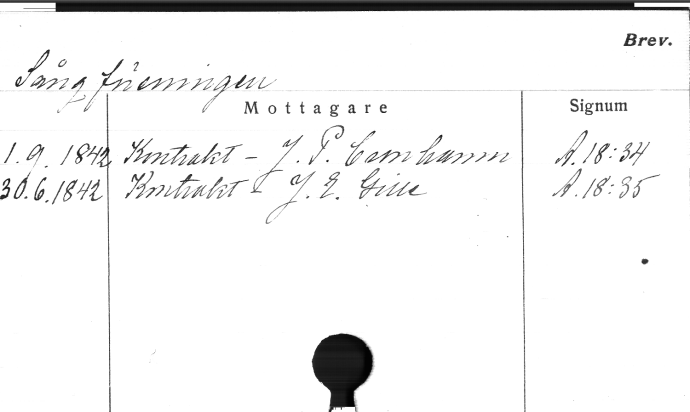 Brev.
Sångföreningen
Mottagare Signum
1.9. 1842 Kontrakt - J. P. Cronhamn A.18:34
30.6.1842 Kontrakt - J. E. Gille A.18:35